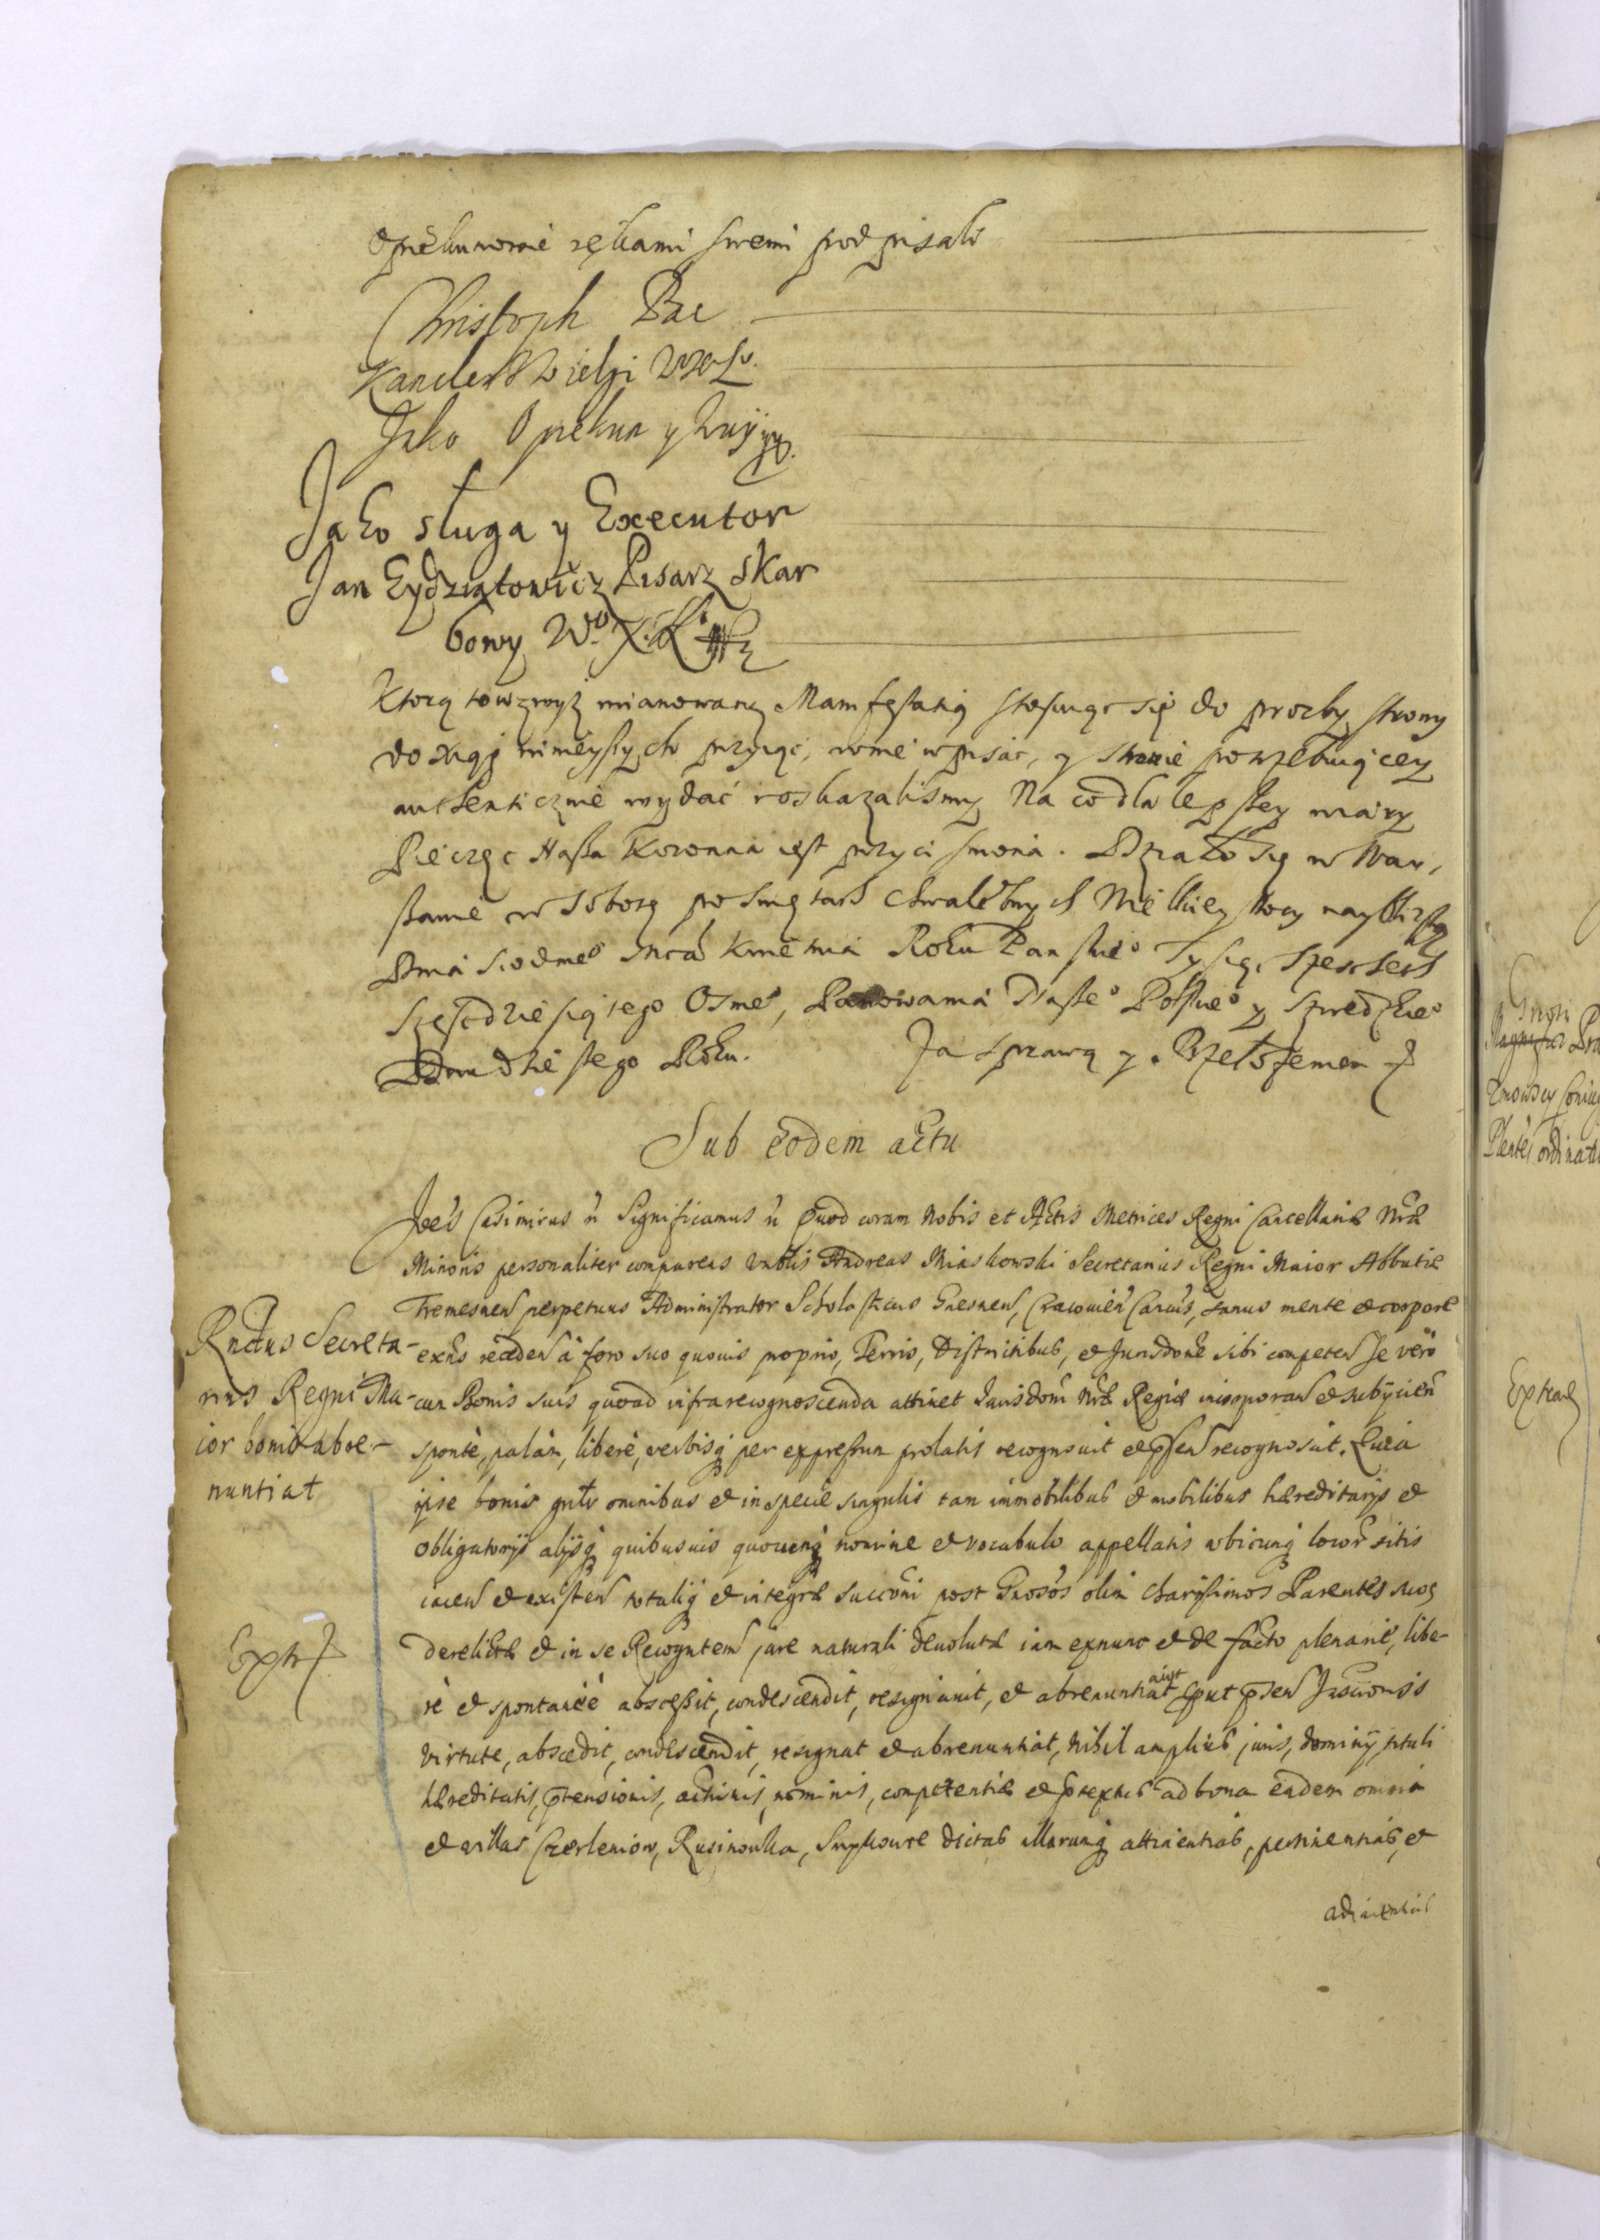 Opiekunowie rękami swemi podpisali
Christoph Pac
Kanclerz Wielki WXL.
Jako Opiekun y
Jako sługa y Executor
Jan Eydziatowicz Pisarz Skar
bowy Wo. X. Lo
Ktorą to wzwyż mianowaną Manifestatią stosuiąc się do prozby strony
do xiąg ninieyszych przyiąć, w nie wpisać, y stronie potrzebuiącey
authenticznie wydać roskazalismy Na co dla lepszey wiary
Pieczęc Nasza Koronna iest przycisniona. Działo się w War,
szawie w Sobotę po Swiętach Chwalebnych Wielkiey Nocy naybliższą
Dnia siodmeo Mca Kwietnia Roku Panskieo Tysiąc Szescset
Szescdziesiątego Osmeo, Panowania Naszeo Polskieo y Szwedzkieo
Dwudziestego Roku. Ja sprawą y. Przełożeniem
Sub eodem actu
Joes Casimirus n Significamus n Quod coram Nobis et Actis Metrices Regni Cancellariæ Nræ
Minoris personaliter comparens Vnblis Andreas Miaskowski Secretarius Regni Maior Abbatiæ
Tremesnen perpetuus Administrator Scholasticus Gnesnen, Cracouien Canus, sanus mente et corpore
Rndus Secreta-
exns receden à foro suo quouis proprio, Terris, Districtibus, et Jurisdone sibi competen se vero
rius Regni Ma-
cum Bonis suis quoad infra recognoscenda attinet Jurisdoni Nræ Regiæ incorporan et subijcien
ior bonis abre-
sponte, palàm, liberè, verbisq per expressum prolatis recognouit et pñsen recognoscit. Quia
nuntiat
ipse bonis gnlr omnibus et in specie singulis tam immobilibus et mobilibus hæreditarijs et
obligatorijs alijsq quibusuis quocunq nomine et vocabulo appellatis vbicunq locor sitis
iacen et existen totaliq et integræ succoni post Gnosos olim charissimos Parentes suos
Extr
derelictæ et in se Recognten jure naturali deuolutæ iam exnunc et de facto plenarie, libe-
rè et spontaneè abscessit, condescendit, resignauit, et abrenuntiat auit put pñsen Jnscriptionis
virtute, abscedit, condescendit, resignat et abrenuntiat, nihil amplius juris, dominij tituli
hæreditatis, prætensionis, actionis, nominis, competentiæ et prætextus ad bona eadem omnia
et villas Czerleniow, Rusinowka, dictas illarumq attinentias, pertinentias, et
adiacentias
Extrad